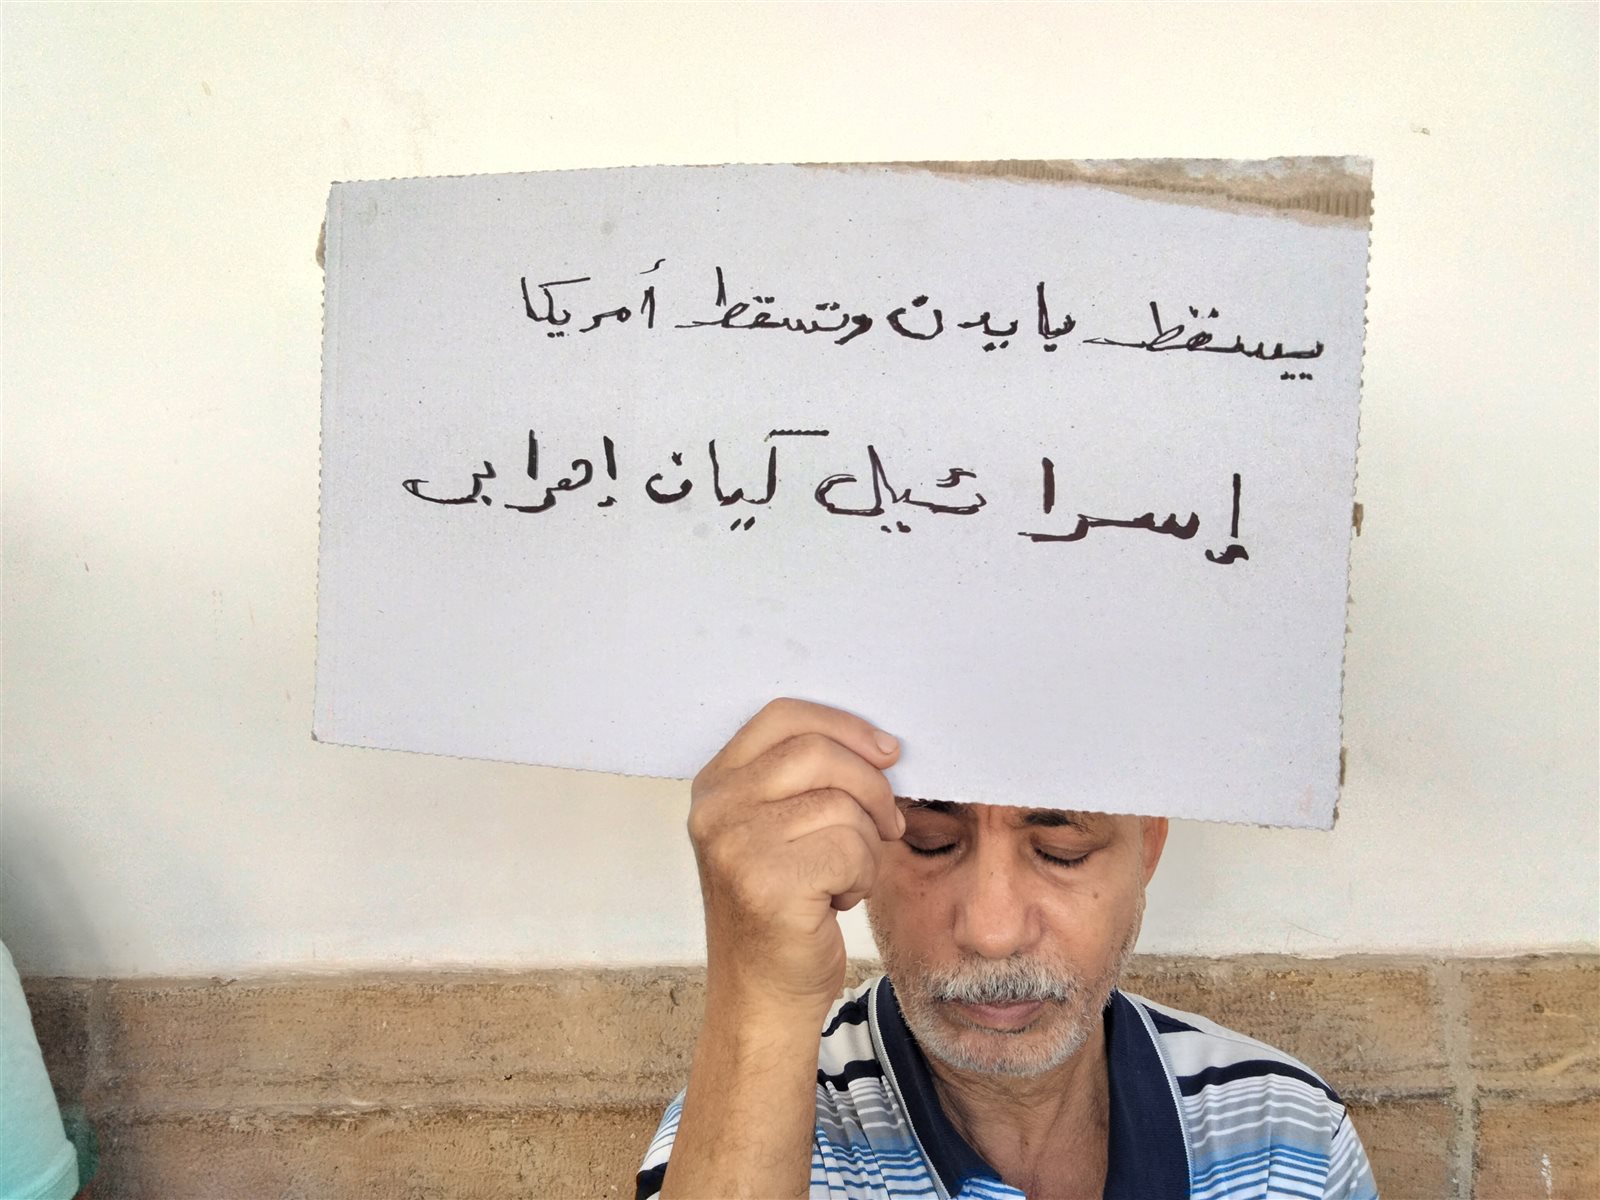 يسقط يابيدن وتسقط أمريكا
إسرائيل كيان إهرابى